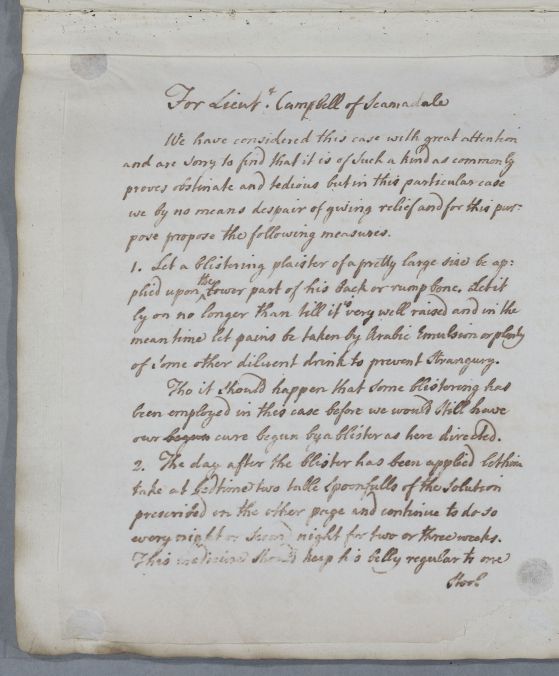 For Lieutt. Campbell of Scamadale
We have considered this case with great attention
and are sorry to find that it is of such a kind as commonly
proves obstinate and tedious but in this particular case
we by no means despair of giving relief and for this pur-
pose propose the following measures.
1. Let a blistering plaister of a pretty large size be ap:
plied upon the lower part of his back or rump bone. Let it
ly on no longer than till it's very well raised and in the
mean time let pains be taken by Arabic Emulsion or plenty
of some other diluent drink to prevent Strangury.
Tho it should happen that some blistering has
been employed in this case before we would still have
our begun cure begun by a blister as here directed.
2. The day after the blister has been applied let him
take at bedtime two table spoonfulls of the Solution
prescribed on the other page and continue to do so
every night or second night for two or three weeks.
This medicine should keep his belly regular to one
Stool